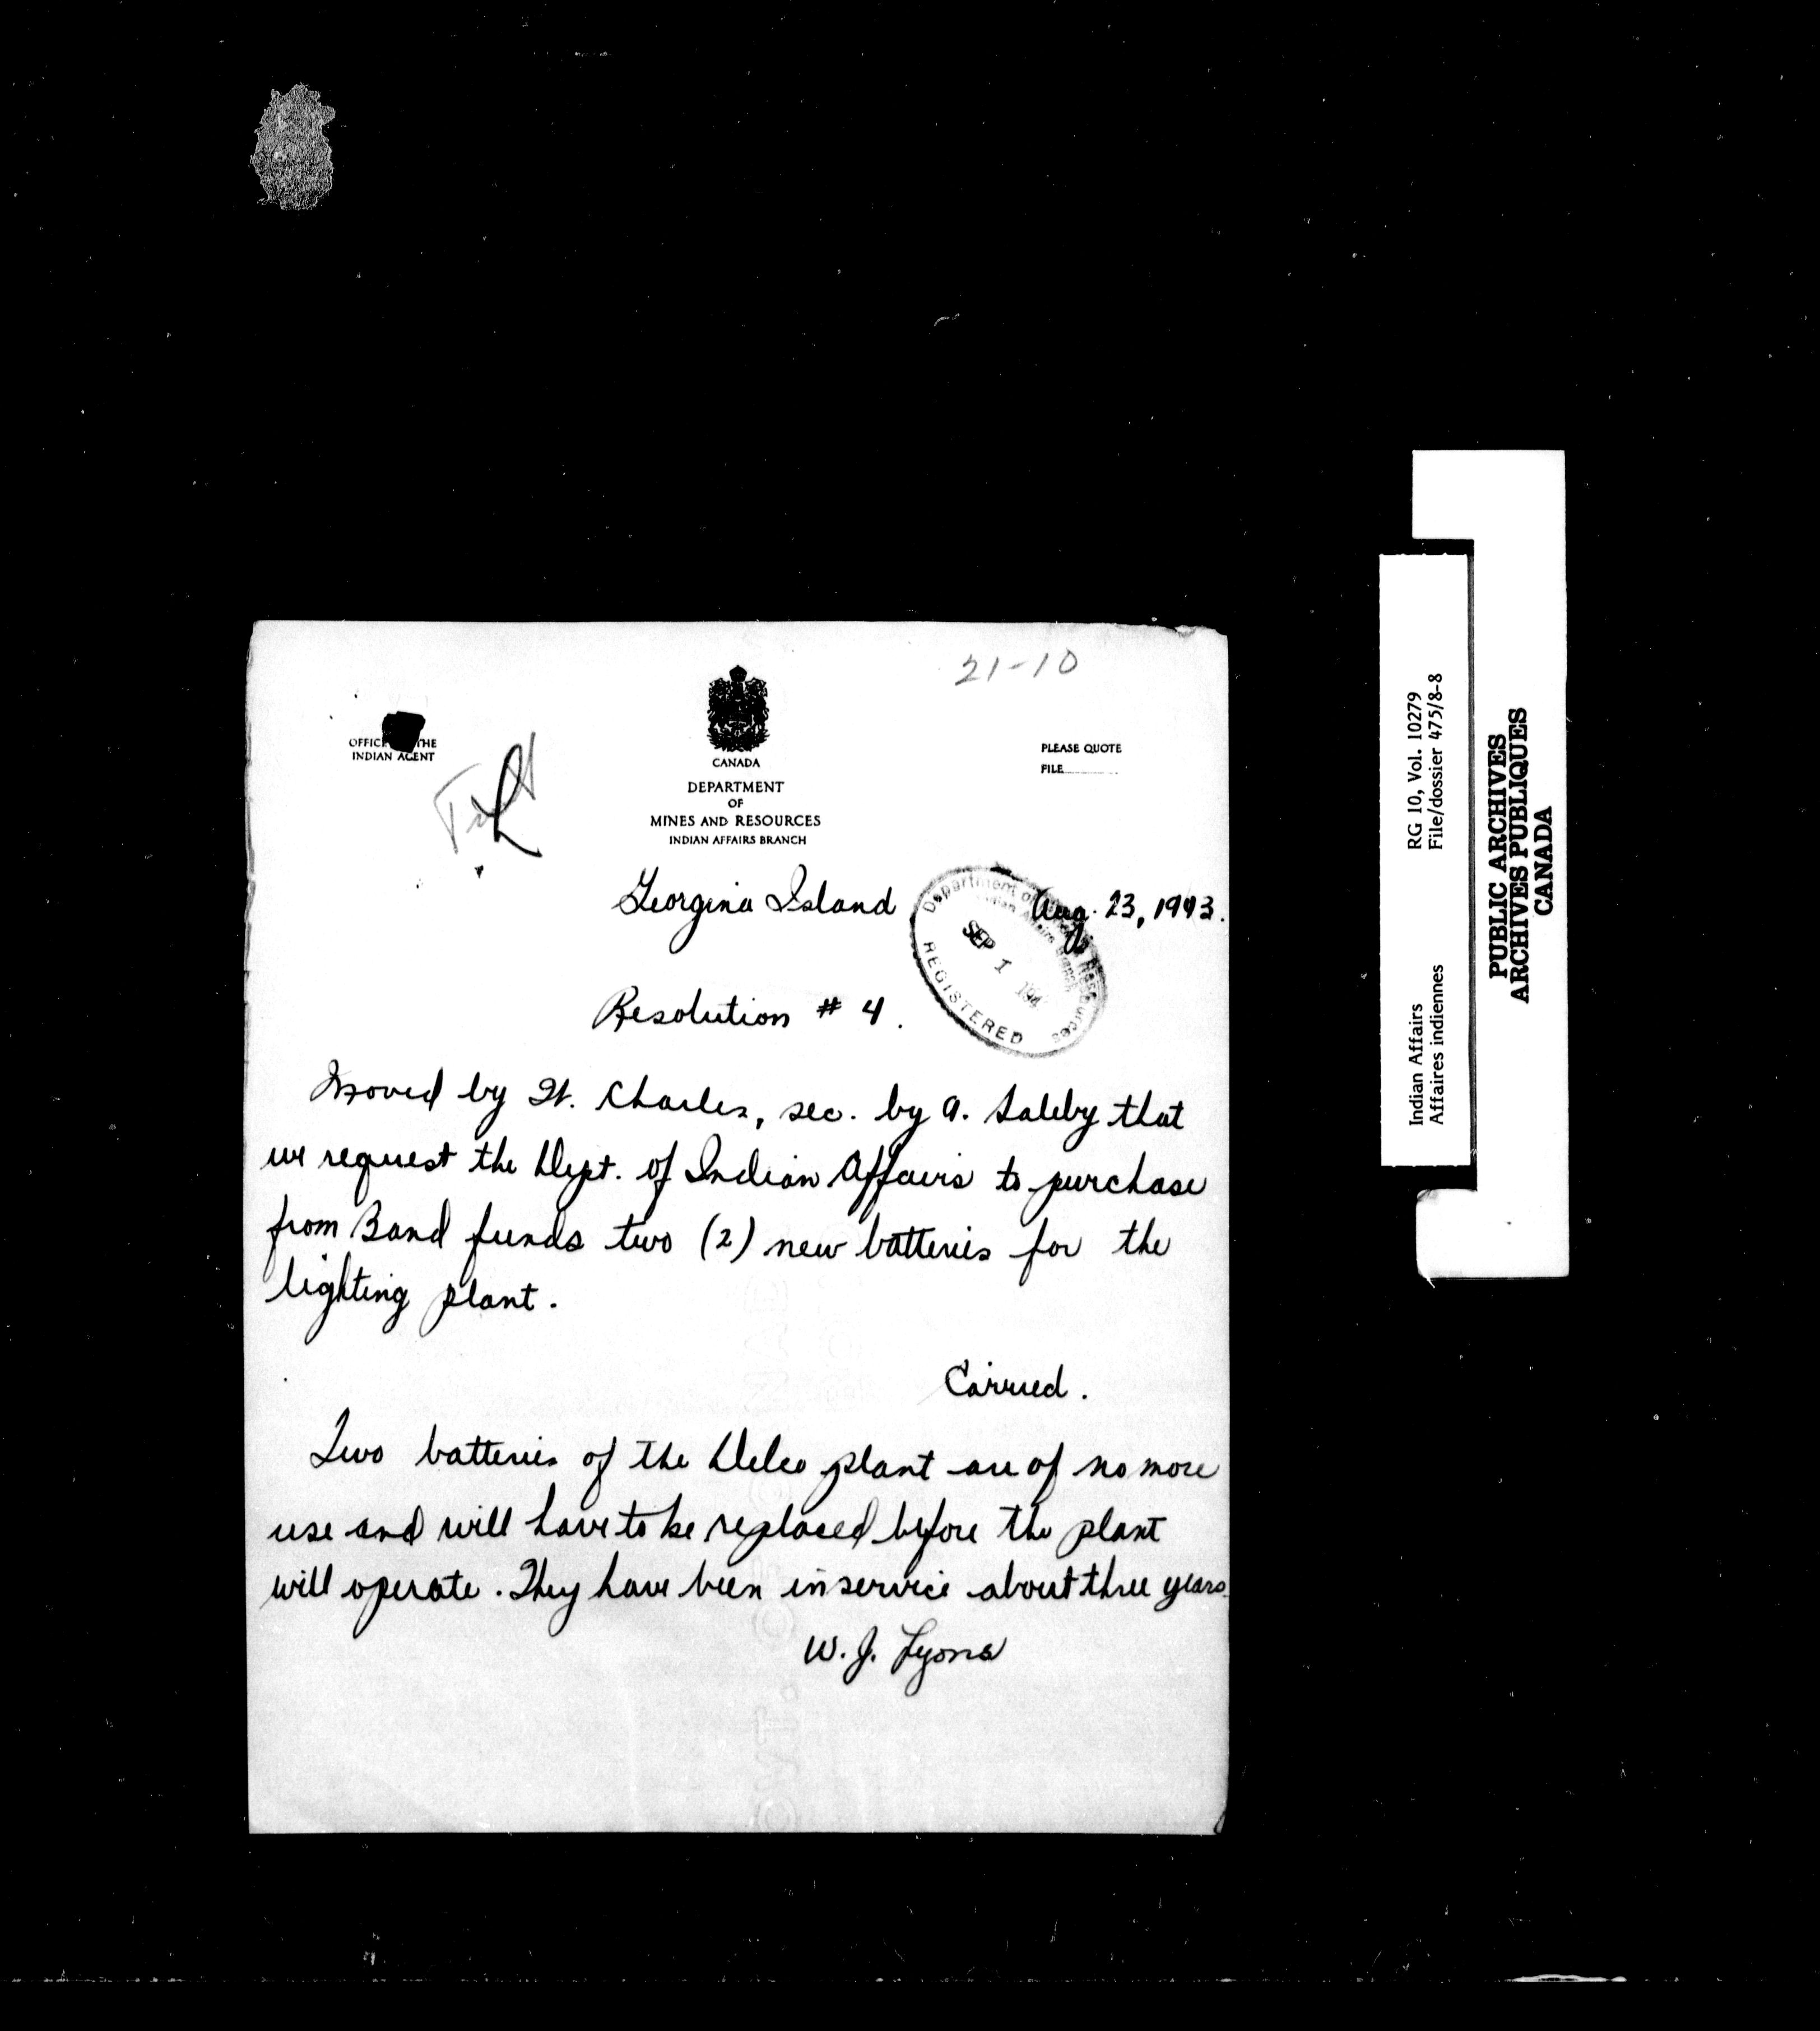 21-10
OFFICE THE
INDIAN AGENT
CANADA
DEPARTMENT
OF
MINES AND RESOURCES
INDIAN AFFAIRS BRANCH
PLEASE QUOTE
FILE
Georgina Island Aug. 23, 1943.
Department of Mines and Resources
Indian Affairs Branch
SEP 1 194
REGISTERED
Resolution # 4.
Moved by W. Charles, sec. by A. that
we request the Dept. of Indian Affairs to purchase
from Band funds two (2) new batteries for the
lighting plant.
Carried.
Two batteries of the Delco plant are of no more
use and will have to be replaced before the plant
will operate. They have been in service about three years.
W. J. Lyons
Indian Affairs
Affaires indiennes
RG 10, Vol. 10279
File/dossier 475/8-8
PUBLIC ARCHIVES
ARCHIVES PUBLIQUES
CANADA